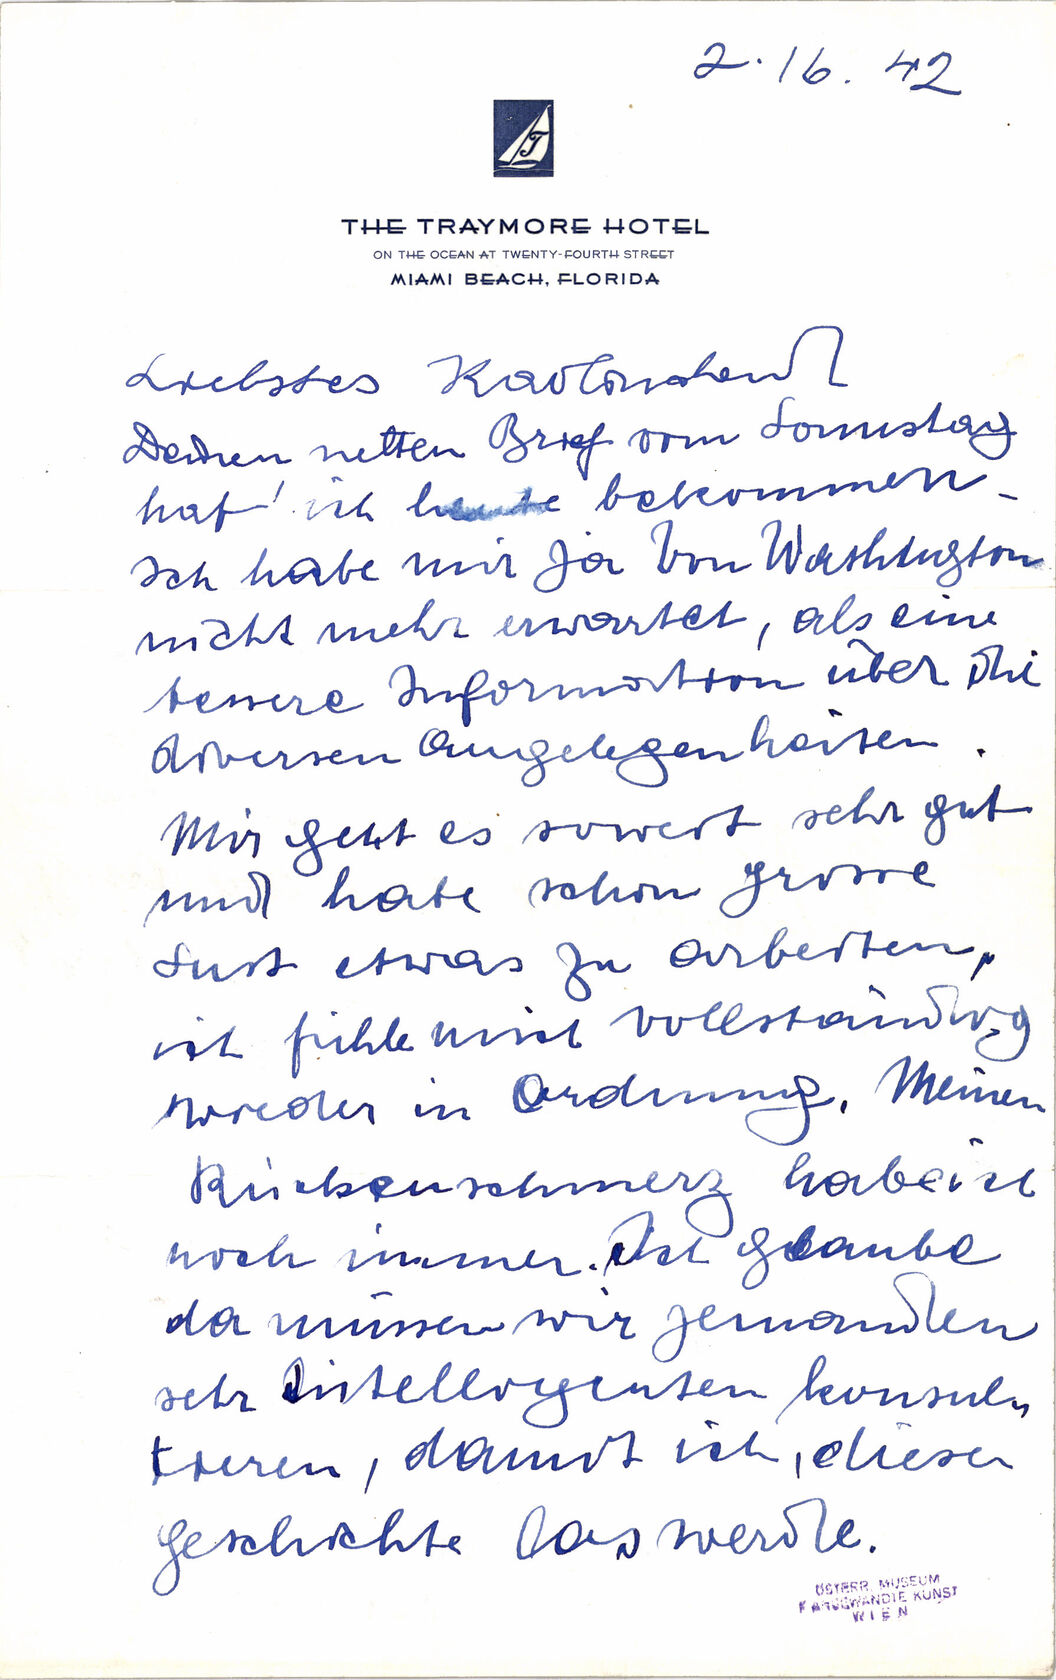 2.16.42
T
THE TRAYMORE HOTEL
ON THE OCEAN AT TWENTY-FOURTH STREET
MIAMI BEACH, FLORIDA
Liebstes
Deinen netten Brief vom Sonnstag
hab' ich heute bekommen –
Ich habe mir ja von Washington
nicht mehr erwartet, als eine
bessere Information über die
diversen Angelegenheiten.
Mir geht es soweit sehr gut
und habe schon grosse
Lust etwas zu arbeiten,
ich fühle mich vollständig
wieder in Ordnung. Meinen
Rückenschmerz habe ich
noch immer. Ich glaube
da müssen wir jemanden
sehr intelligenten konsul-
tieren, damit ich, diese
Geschichte los werde.
ÖSTERR. MUSEUM
F ANGEWANDTE KUNST
WIEN